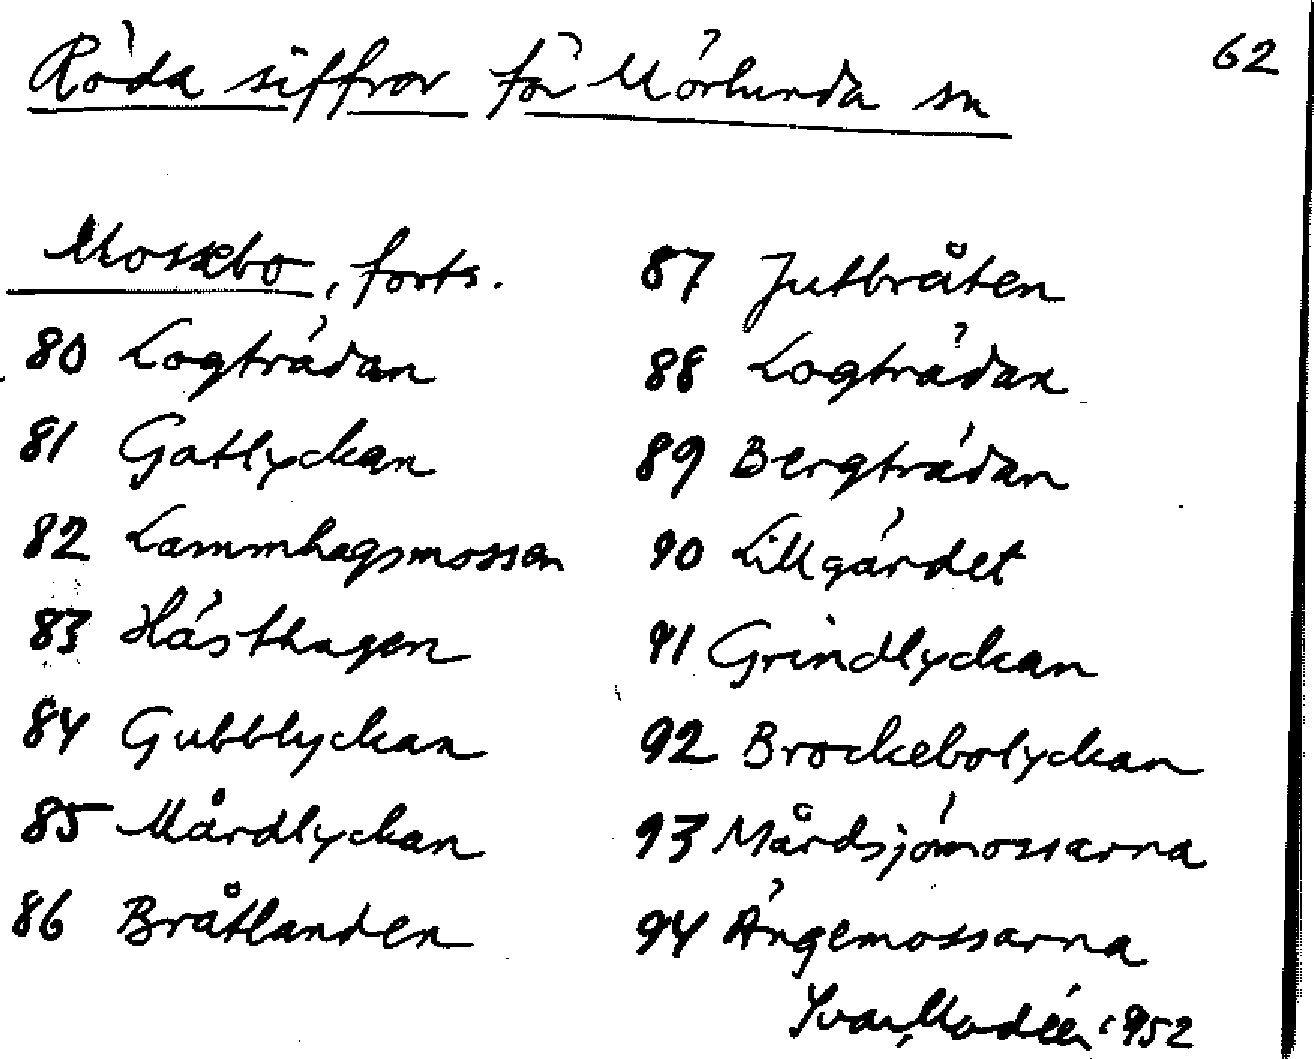 62
Röda siffror för Mörlunda sn
Mossebo, forts.
80 Logträdan
81 Gatlyckan
82 Lammhagsmossen
83 Hästhagen
84 Gubblyckan
85 Mårdlyckan
86 Bråtlanden
87 Jutbråten
88 Logträdan
89 Bergträdan
90 Lillgärdet
91 Grindlyckan
92 Brockebolyckan
93 Mårdsjömossarna
94 Ängemossarna
Yvar Modéer 1952